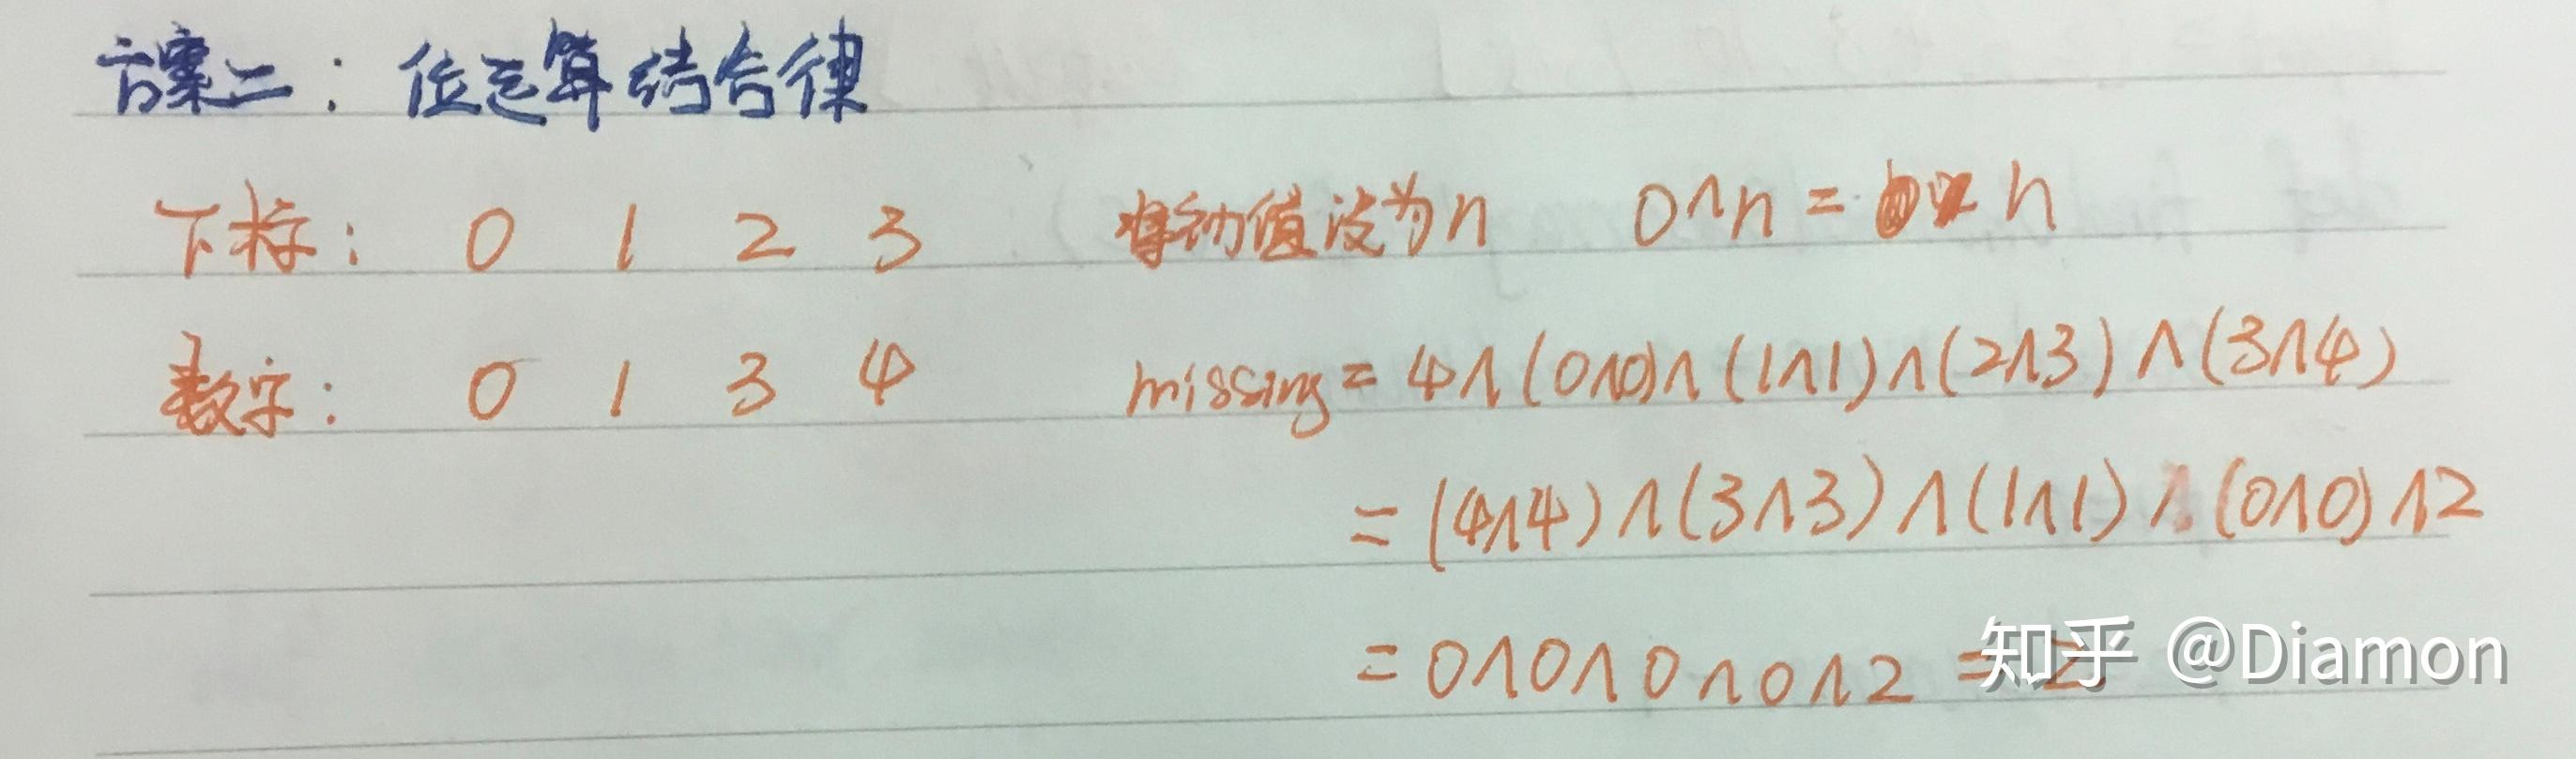 方案二：位运算结合律
下标： 0 1 2 3 将初值设为n 0^n = n
数字： 0 1 3 4 missing = 4^(0^0)^(1^1)^(2^3)^(3^4)
= (4^4)^(3^3)^(1^1)^(0^0)^2
= 0^0^0^0^2 = 2
知乎 @Diamon